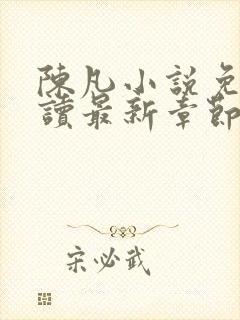 陳凡小說免
讀最新章節
宋必武